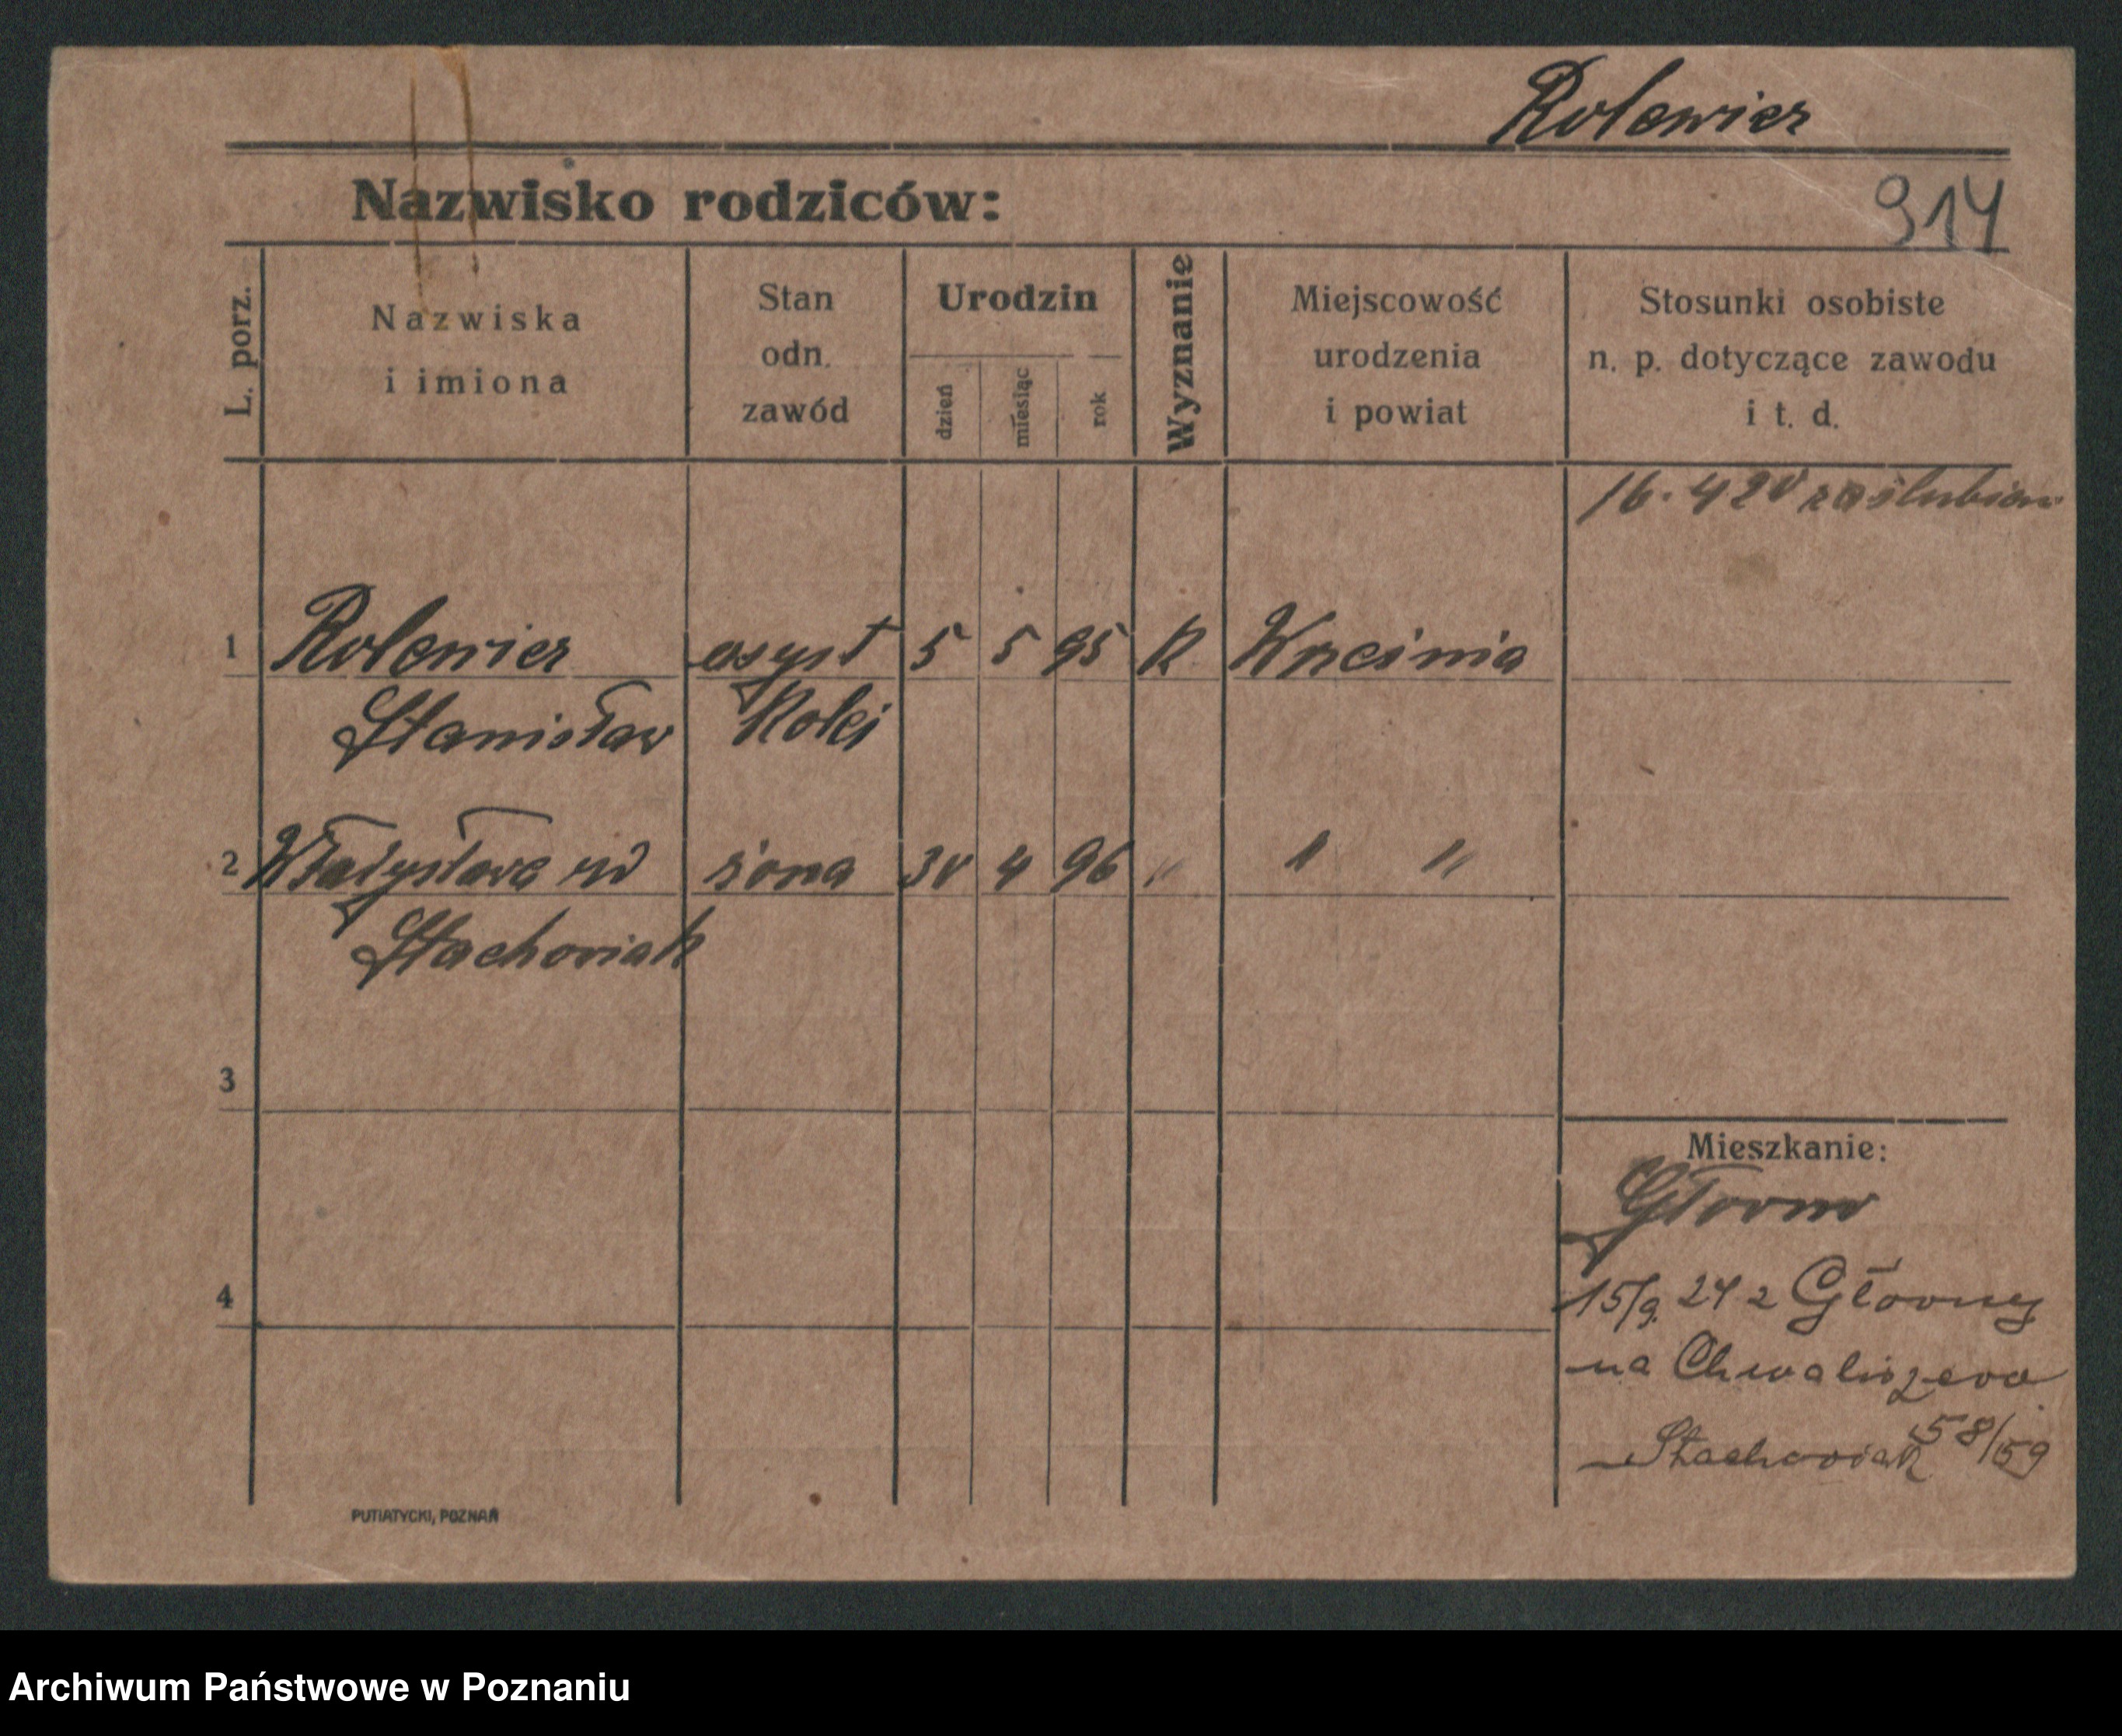 Rolewicz
Nazwisko rodziców:
914
L. porz.
Nazwiska
i imiona
Stan
odn.
zawód
Urodzin
dzień
miesiąc
rok
Wyznanie
Miejscowość
urodzenia
i powiat
Stosunki osobiste
n. p. dotyczące zawodu
i t. d.
16. 4 20 zaślubion
1 Rolewicz asyst 5 5 95 K Września
Stanisław Kolei
2 Władysława żona 30 4 96 " " "
Stachowiak
3
Mieszkanie:
Główno
4
15/9. 24 z Główny
na Chwaliszewo
58/59
Stachowiak
PUTIATYCKI, POZNAŃ
Archiwum Państwowe w Poznaniu